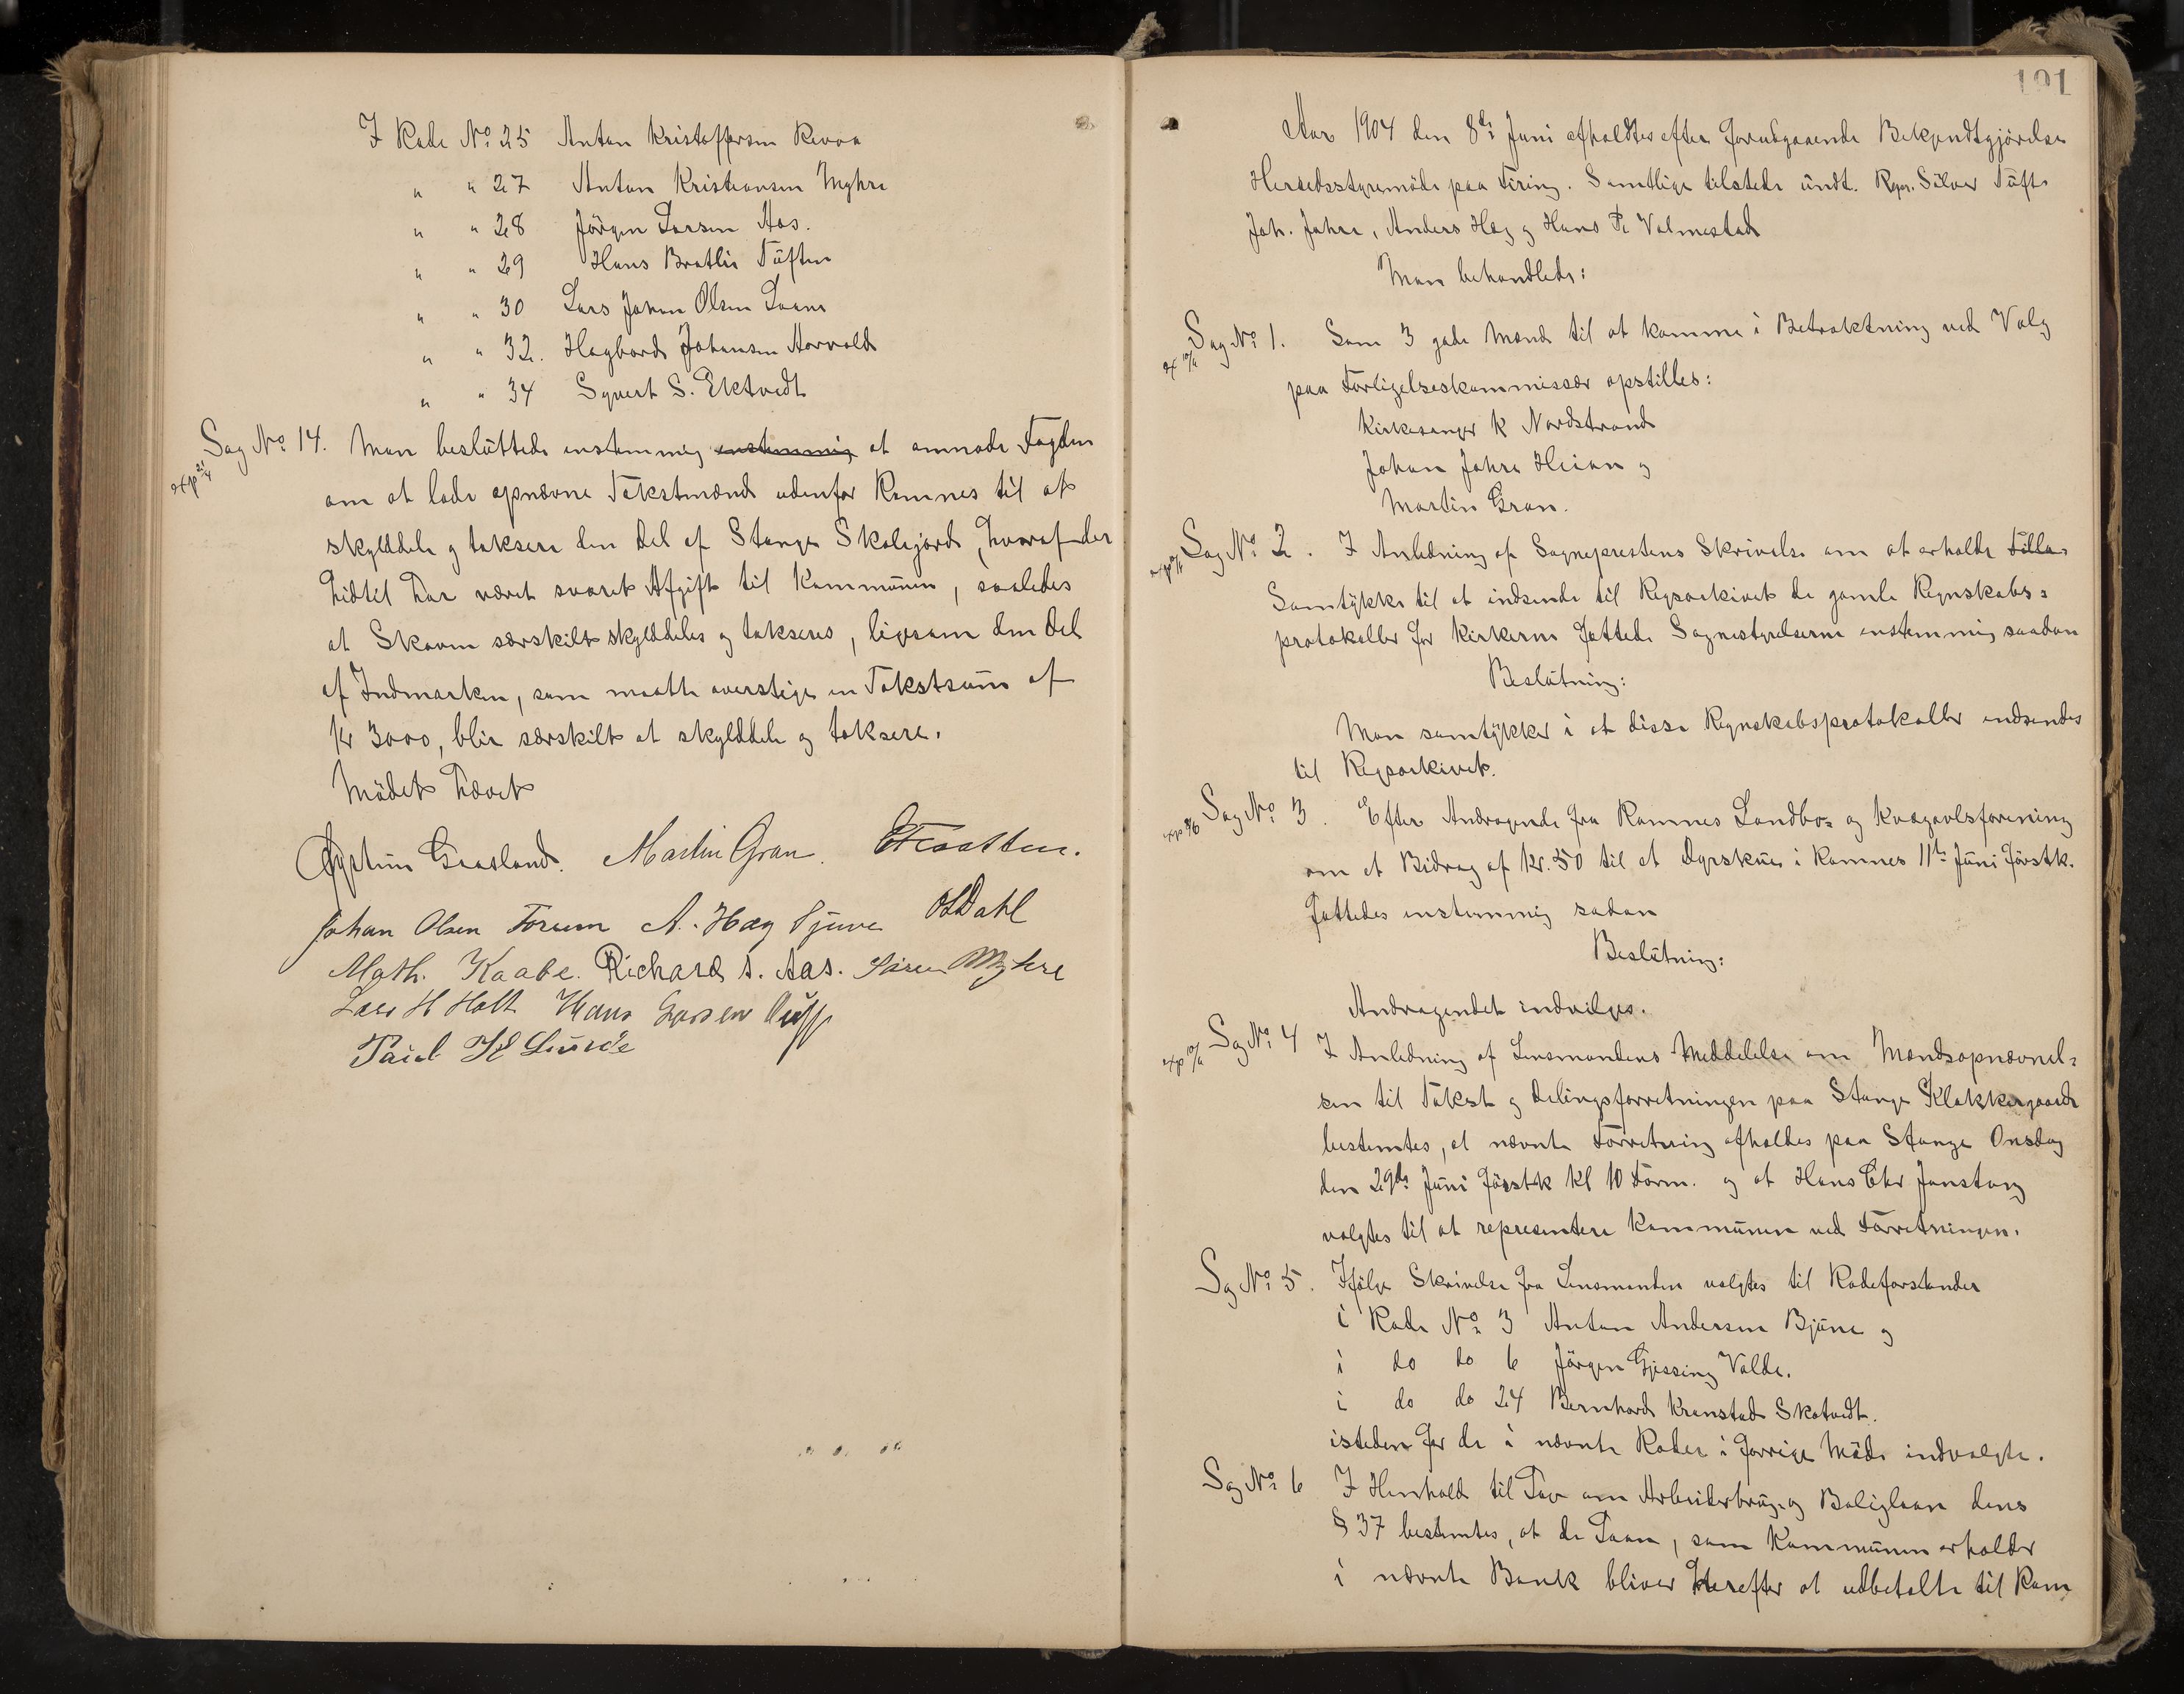 I Rode No. 25 Anton Kristoffersen Revaa
" " 27 Anton Kristiansen Myhre
" " 28 Jörgen Larsen Aas.
" " 29 Hans Bratlie Tüften
" " 30 Lars Johan Olsen Laane
" " 32. Hagbard Johansen Horvold
" " 34 Syvert S. Ektvedt
Sag No. 14. Man beslüttede enstemmig enstemmig at anmode Fogden
exp
om at lade opnævne Takstmænd udenfor Ramnes til at
skylddele og taksere den Del af Stange Skolejord, hvoraf der
hidtil har været svaret Afgift til Kommünen, saaledes
at Skoven særskilt skylddeles og takseres, ligesom den Del
af Indmarken, som maatte overstige en Takstsüm af
Kr 3000, blir særskilt at skylddele og taksere.
Mödet hævet
Martin Gran.
Johan Olsen Forum A. Hæg Bjune O Dahl
Math. Kaabe. Richard S. Aas. Sören Myhre
Lars H Holt Hans Larsen
Paul Lünde
191
Aar 1904 den 8de Juni afholdtes efter forudgaaende Bekjendtgjörelse
Herredsstyremöde paa Firing. Samtlige tilstede ündt. Repr. Silver Tüfte
Joh. Jahre, Anders Hæg og Hans P. Valmestad
Man behandlede:
Sag No. 1. Som 3 gode Mænd til at komme i Betraktning ved Valg
paa Forligelseskommissær opstilles:
Kirkesanger K Nordstrand
Johan Jahre Heian og
Martin Gran.
Sag No. 2. I Anledning af Sogneprestens Skrivelse om at erholde
Samtÿkke til at indsende til Rigsarkivet de gamle Regnskabs=
protokoller for Kirkerne fattede Sognestyrelserne enstemmig saadan
Beslütning:
Man samtÿkker i at disse Regnskabsprotokoller indsendes
til Rigsarkivet.
Sag No. 3. Efter Andragende fra Ramnes Landbo= og Kvægavlsforening
om et Bidrag af Kr. 50 til et Dyrskue i Ramnes 11te Jüni förstk.
fattedes enstemmig sadan
Beslütning:
Andragendet indvilges.
Sag No. 4 I Anledning af Lensmandens Meddelelse om Mandsopnævnel=
sen til Takst og Delingsforretningen paa Stange Klokkergaard
bestemtes, at nævnte Forretning afholdes paa Stange Onsdag
den 29de Jüni förstk Kl 10 Form. og at Hans Chr Jonstang
valgtes til at representere Kommünen ved Forretningen.
Sag No. 5. Ifölge Skrivelse fra Lensmanden valgtes til Rodeforstander
i Rode No. 3 Anton Andersen Bjüne og
i do do 6 Jörgen Gjessing Valde.
i do do 24 Bernhard Kranstad Skotvedt.
isteden for de i nævnte Roder i forrige Möde indvalgte.
Sag No. 6 I Henhold til Lov om Arbeiderbrüg= og Boliglaan dens
§ 37 bestemtes, at de Laan, som Kommünen erholder
i nævnte Bank bliver herefter at udbetalte til Kom